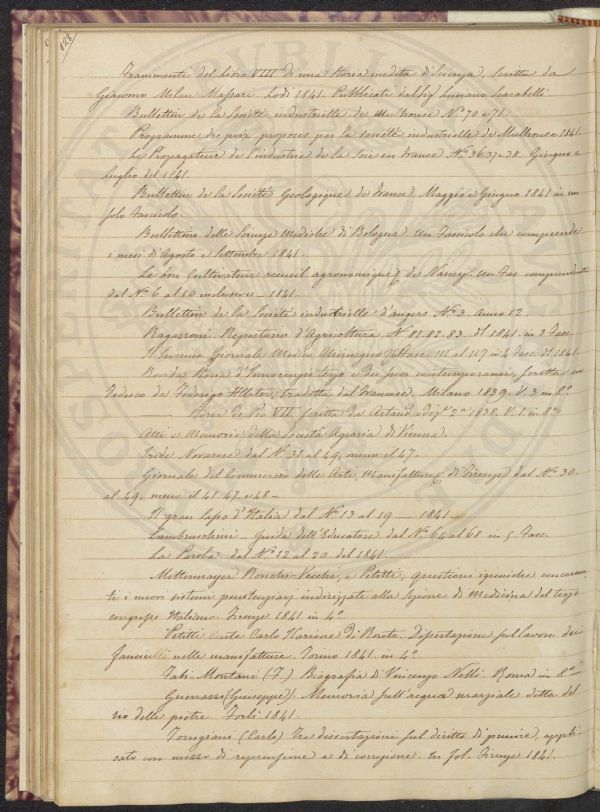 128
Frammento del Libro VIII di una storia inedita di Faenza, scritta da
Giacomo Milan Massari. Lodi 1841. Pubblicati dal Sig Luciano Scarabelli.
Bullettin de la Société industrielle de Mulhouse N.º 70 e 71.
Programme des prix proposés par la société industrielle de Mulhouse 1841.
Le Propagateur de l'industrie de la Soie en France N. 36. 37 e 38. Giugno e
luglio del 1841.
Bullettin de la Société Geologique de France, Maggio e Giugno 1841 in un
solo Fascicolo.
Bullettino delle Scienze Mediche di Bologna. Un Fascicolo che comprende
i mesi d'Agosto e Settembre 1841.
Le bon Cultivateur recueil agronomique de Nancy. Un Fas. comprendente
dal N. 6 al 10 inclusive - 1841.
Bullettin de la Société industrielle d'Angers N.º 3. Anno 12.
Ragazzoni. Repertorio d'Agricoltura N.º 81. 82. 83. del 1841. in 3 Fasc.
Il Severino Giornale Medico Chirurgico dal Fasc. 111 al 117 in 4 Fasc. del 1841.
Storia d'Innocenzo terzo e dei suoi contemporanei, scritta in
Tedesco da Federigo, tradotta dal Francese, Milano 1839. V. 3 in 8º
Storia di Pio VII. scritta da Artaud ediz.e 2.a 1838. V. 1. in 8º
Atti e Memorie della Società Agraria di Vienna.
Iride Novarese dal N.º 38 al 49, meno il 47.
Giornale del Commercio delle Arti, Manifatture di Firenze dal N.º 30
al 49, meno il 41. 47 e 48 -
Il gran Capo d'Italia dal N.º 13 al 19 - 1841 -
Lambruschini - Guida dell'Educatore dal N.º 64 al 68 in 5. Fasc.
La Parola dal N.º 12 al 20 del 1841.
Mittermayer Ronchi-Vecchi, e Petitti, questioni igieniche concernen
ti i nuovi sistemi penitenziarj indirizzate alla Sezione di Medicina del terzo
congresso Italiano. Firenze 1841 in 4º
Petitti Conte Carlo Ilarione di Roreto. Dissertazione sul lavoro dei
fanciulli nelle manifatture. Torino 1841. in 4º
Fabi Montani (F.) Biografia di Vincenzo Nelli. Roma in 8º -
(Giuseppe) Memoria sull'acqua marziale detta del
rio delle pietre. Forlì 1841.
(Carlo) Tre dissertazioni sul diritto di punire, appli
cato con mezzo di repressione e di correzione. in fol. Firenze 1841.